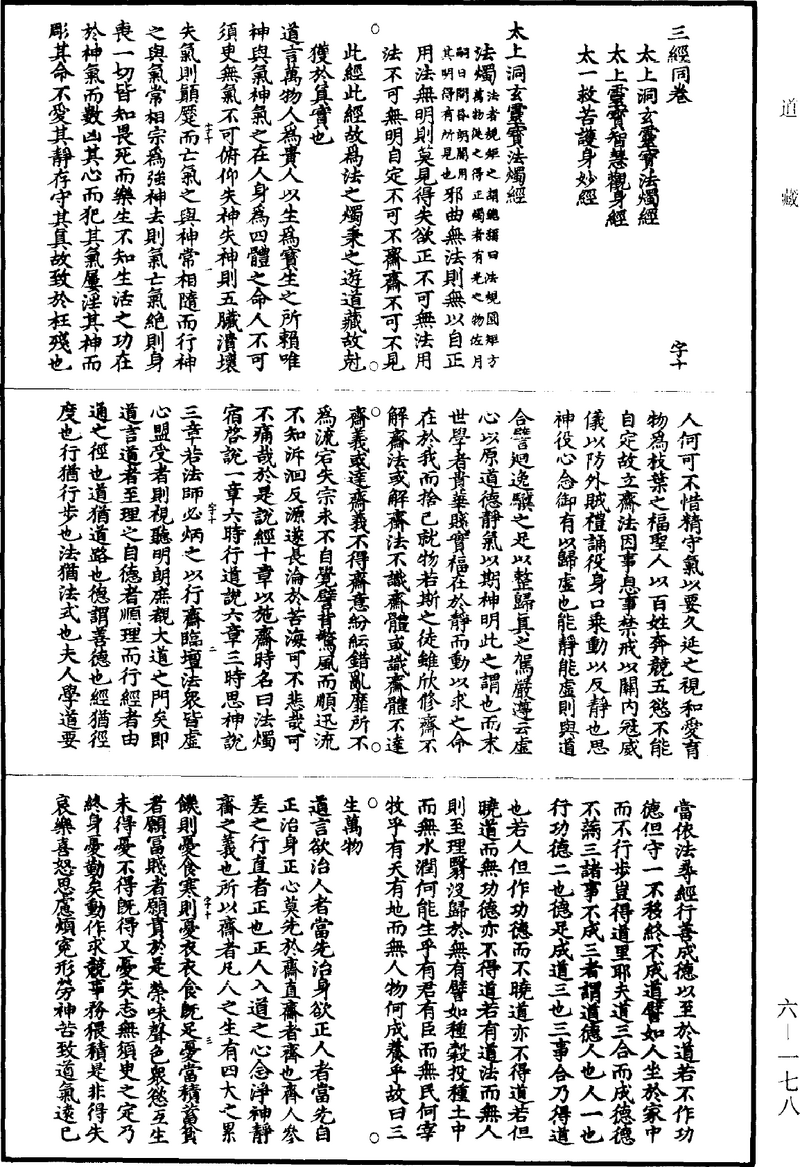 道藏
三經同卷　字十
太上洞玄靈寶法燭經
太上靈寶智慧觀身經
太一救苦護身妙經
太上洞玄靈寶法燭經
法燭法者規矩之謂總猶曰法規圓矩方
萬物從之得正燭者有光之物佐月
嗣日開昏朗闇用
其明得有所見也邪曲無法則無以自正
用法無明則莫見得失欲正不可無法用
法不可無明自定不可不齋齋不可不見
此經此經故為法之燭秉之遊道藏故尅
獲於真實也
道言萬物人為貴人以生為寶生之所賴唯
神與氣神氣之在人身為四體之命人不可
須臾無氣不可俯仰失神失神則五臟潰壞
失氣則顛蹷而亡氣之與神常相隨而行神
之與氣常相宗為強神去則氣亡氣絕則身
喪一切皆知畏死而樂生不知生活之功在
於神氣而數凶其心而犯其氣屢淫其神而
彫其命不愛其靜存守其真故致於枉殘也
人何可不惜精守氣以要久延之視和愛育
物為枝葉之福聖人以百姓奔競五慾不能
自定故立齋法因事息事禁戒以閑內寇威
儀以防外賊禮誦役身口乘動以反靜也思
神役心念御有以歸虛也能靜能虛則與道
合譬迴逸驥之足以整歸真之駕嚴遵云虛
心以原道德靜氣以期神明此之謂也而末
世學者貴華賤實福在於靜而動以求之命
在於我而捨己就物若斯之徒雖欣修齋不
解齋法或解齋法不識齋體或識齋體不達
齋義或達齋義不得齋意紛紜錯亂靡所不
為流宕失宗永不自覺譬背驚風而順迅流
不知泝洄反源遂長淪於苦海可不悲哉可
不痛哉於是說經十章以施齋時名曰法燭
宿啓說一章六時行道說六章三時思神說
三章若法師必炳之以行齋臨壇法衆皆虛
心盟受者則視聽明朗庶覩大道之門矣即
道言道者至理之自德者順理而行經者由
通之徑也道猶道路也德謂善德也經猶徑
度也行猶行步也法猶法式也夫人學道要
當依法尋經行善成德以至於道若不作功
德但守一不移終不成道譬如人坐於家中
而不行步豈得道里耶夫道三合而成德德
不滿三諸事不成三者謂道德人也人一也
行功德二也德足成道三也三事合乃得道
也若人但作功德而不曉道亦不得道若但
曉道而無功德亦不得道若有道法而無人
則至理翳沒歸於無有譬如種穀投種土中
而無水潤何能生乎有君有臣而無民何宰
牧乎有天有地而無人物何成養乎故曰三
生萬物
道言欲治人者當先治身欲正人者當先自
正治身正心莫先於齋直齋者齊也齊人參
差之行直者正也正人入道之心念淨神靜
齋之義也所以齋者凡人之生有四大之累
饑則憂食寒則憂衣衣食既足憂當積蓄貧
者願富賤者願貴於是榮味聲色衆慾互生
未得憂不得既得又憂失志無須臾之定乃
終身憂勤矣動作求競事務猥積是非得失
哀樂喜怒思慮煩寃形勞神苦致道氣遠已
六—一七八